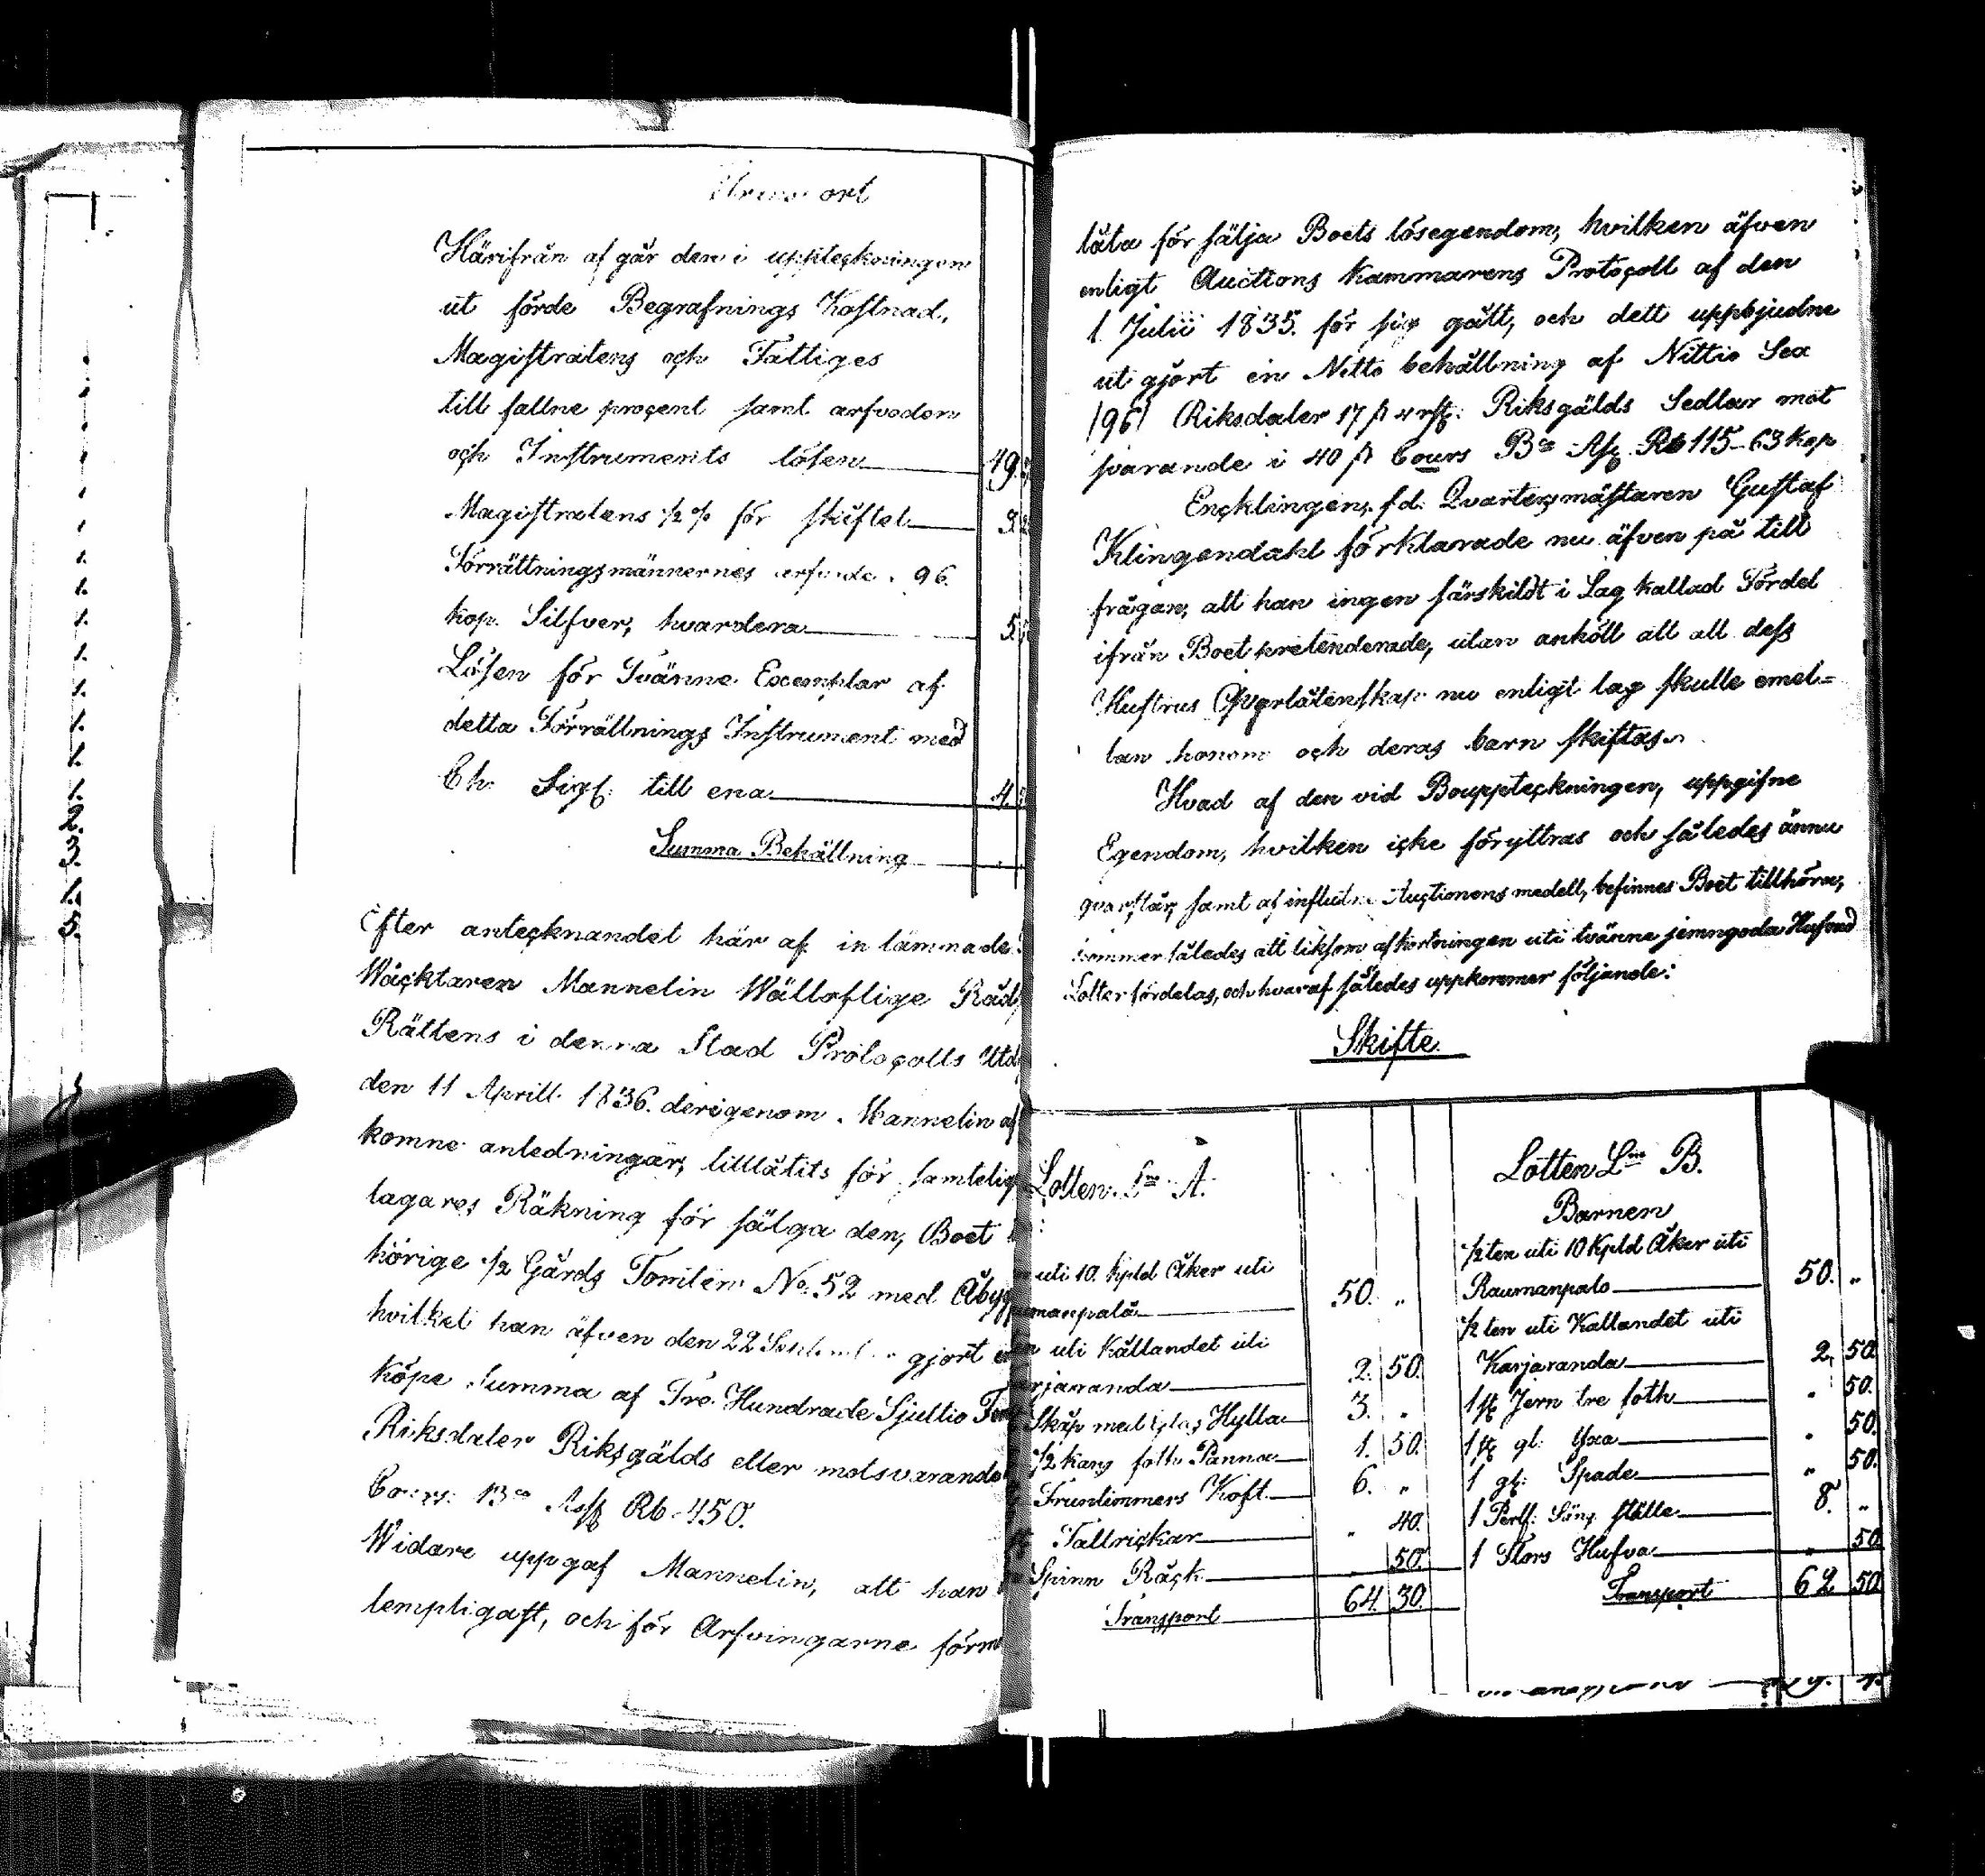 Transport
Härifrån af går den i uppteckningen
ut förde Begrafnings Kostnad,
Magistratens och Fattiges
till fallne procent samt arfvoden
och Instruments lösen 49.
Magistratens 1/2 % för skiftet 3.
Förrättningsmännernes arfvode 96.
kop. Silfver, hvardera 5.
Lösen för Tvänne Exemplar af
detta Förrättnings Instrument med
Ch. Sigf: till ena 4.
Summa Behållning
Efter antecknandet här af in lämnade
Wäcktaren Mannelin Wälloflige Råd
Rättens i denna Stad Protocolls Utd
den 11 Aprill 1836. derigenom Mannelin af
komne anledningar, tillåtits för samtelig
tagares Räkning för sälga den, Boet
hörige 1/2 Gårds Tomten No. 52 med Åbyg
hvilket han äfven den 22 September gjort
köpe Summa af Tre Hundrade Sjuttio Fem
Riksdaler Riksgälds eller motsvarande
Cours Bco Assg Rb. 450.
Widare uppgaf Mannelin, att han
lempligast, och för Arfvingarne förm
låta för sälja Boets lösegendom, hvilken äfven
enligt Auctions Kammarens Protocoll af den
1 Julii 1835. för sig gått, och dett uppbjudne
ut gjort en Netto behållning af Nittio Sex
/96/ Riksdaler 17 ß 4 rst: Riksgälds Sedlar mot
svarande i 40 ß Cours Bco Assg Rb 115-63 kop
Encklingen, f.d. Qvartersmästaren Gustaf
Klingendahl förklarade nu äfven på till
frågan, att han ingen särskildt i Lag kallad Fördel
ifrån Boet pretenderade, utan anhöll att all dess
Hustrus Qvarlåtenskap nu enligt lag skulle emel=
lan honom och deras barn skiftas.
Hvad af den vid Bouppteckningen, uppgifne
Egendom, hvilken icke föryttras och således ännu
qvarstår, samt af influtne Auctionens medell, befinnes Boet tillhöra,
kommer således att liksom afkortningen uti tvänne jemngoda Hufvud
Lotter fördelas, och hvaraf således uppkommer följande:
Skifte.
Lotten Lra A.
uti 10. Kpld Åker uti
manpalo 50. "
uti Kållandet uti
rjaranda 2. 50.
Skåp med Glas Hylla 3. "
1/2 kans foth Panna 1. 50.
Fruntimmers Koft 6. "
Tallrickar " 40.
Spinn Råck 50.
Transport 64. 30.
Lotten Lra B.
Barnen
1/2ten uti 10 Kpld Åker uti
Raumanpalo 50. "
1/2ten uti Kallandet uti
Karjaranda 2, 50.
1 st Jern tre foth " 50.
1 st gl: Yxa " 50.
1 gl: Spade " 50.
1 Perls: Säng ställe 8. "
1 Flors Hufva " 50
Transport 62 50